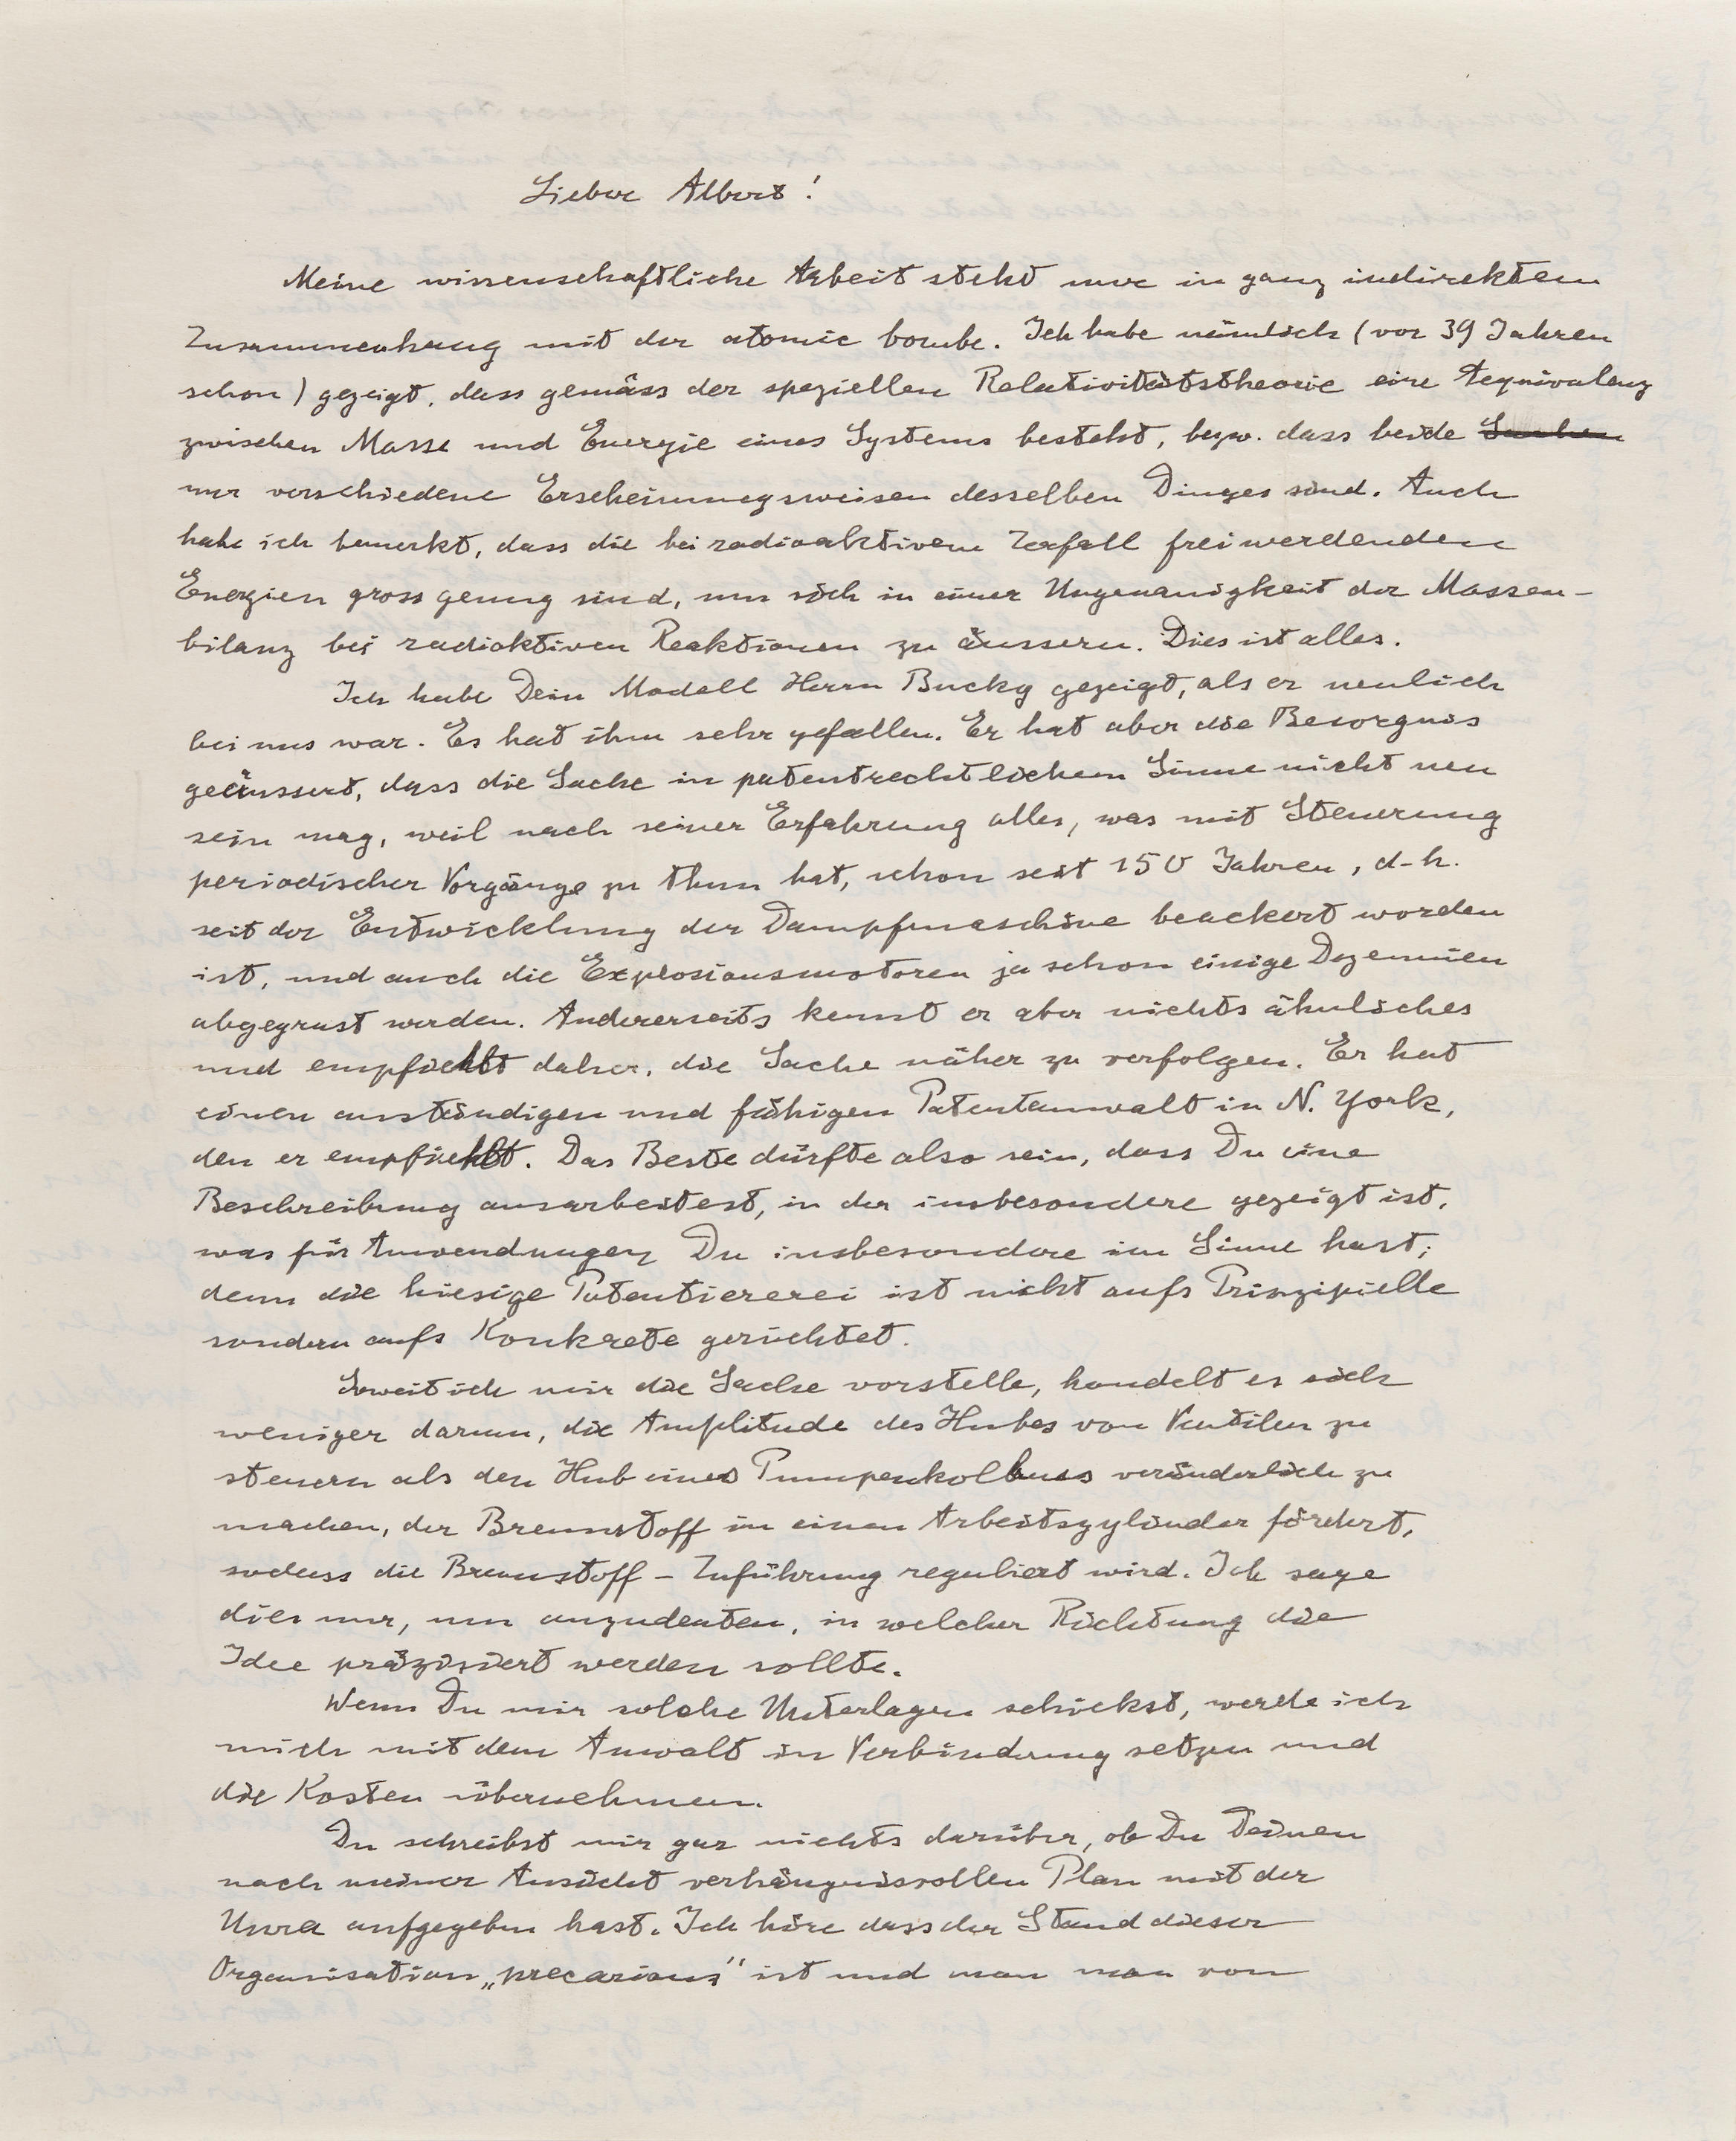 Lieber Albert!
Meine wissenschaftliche Arbeit steht nur in ganz indirektem
Zusammenhang mit der atomic bombe. Ich habe nämlich (vor 39 Jahren
schon) gezeigt, dass gemäss der speziellen Relativitätstheorie eine Aequivalenz
zwischen Masse und Energie eines Systems besteht, bezw. dass beide
nur verschiedene Erscheinungsweisen desselben Dinges sind. Auch
habe ich bemerkt, dass die bei radioaktivem Zerfall freiwerdenden
Energien gross genug sind, um sich in einer Ungenauigkeit der Massen-
bilanz bei radioktiven Reaktionen zu äussern. Dies ist alles.
Ich habe Dein Modell Herrn Bucky gezeigt, als er neulich
bei uns war. Es hat ihm sehr gefallen. Er hat aber die Besorgnis
geäussert, dass die Sache in patentrechtlichem Sinne nicht neu
sein mag, weil nach seiner Erfahrung alles, was mit Steuerung
periodischer Vorgänge zu thun hat, schon seit 150 Jahren, d-h.
seit der Entwicklung der Dampfmaschine beackert worden
ist, und auch die Explosionsmotoren ja schon einige Dezennien
abgegrast werden. Andererseits kennt er aber nichts ähnliches
und empfiehlt daher, die Sache näher zu verfolgen. Er hat
einen anständigen und fähigen Patentanwalt in N. York,
den er empfiehlt. Das Beste dürfte also sein, dass Du eine
Beschreibung ausarbeitest, in der insbesondere gezeigt ist,
was für Anwendungen Du insbesondere im Sinne hast;
denn die hiesige Patentiererei ist nicht aufs Prinzipielle
sondern aufs Konkrete gerichtet.
Soweit ich mir die Sache vorstelle, handelt es sich
weniger darum, die Amplitude des Hubes von Ventilen zu
steuern als den Hub eines Pumpenkolbens veränderlich zu
machen, der Brennstoff in einen Arbeitszylinder fördert,
sodass die Brennstoff-Zuführung reguliert wird. Ich sage
dies nur, um anzudeuten, in welcher Richtung die
Idee präzisiert werden sollte.
Wenn Du mir solche Unterlagen schickst, werde ich
mich mit dem Anwalt in Verbindung setzen und
die Kosten übernehmen.
Du schreibst mir gar nichts darüber, ob Du Deinen
nach meiner Ansicht verhängnisvollen Plan mit der
Unra aufgegeben hast. Ich höre dass der Stand dieser
Organisation „precarious" ist und man man von